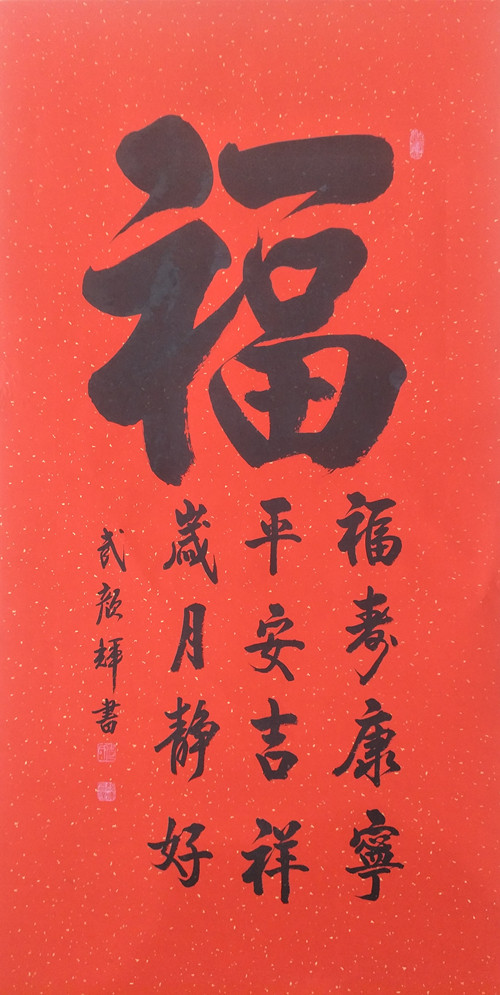 福
福壽康寧
平安吉祥
歲月静好
武顏輝書